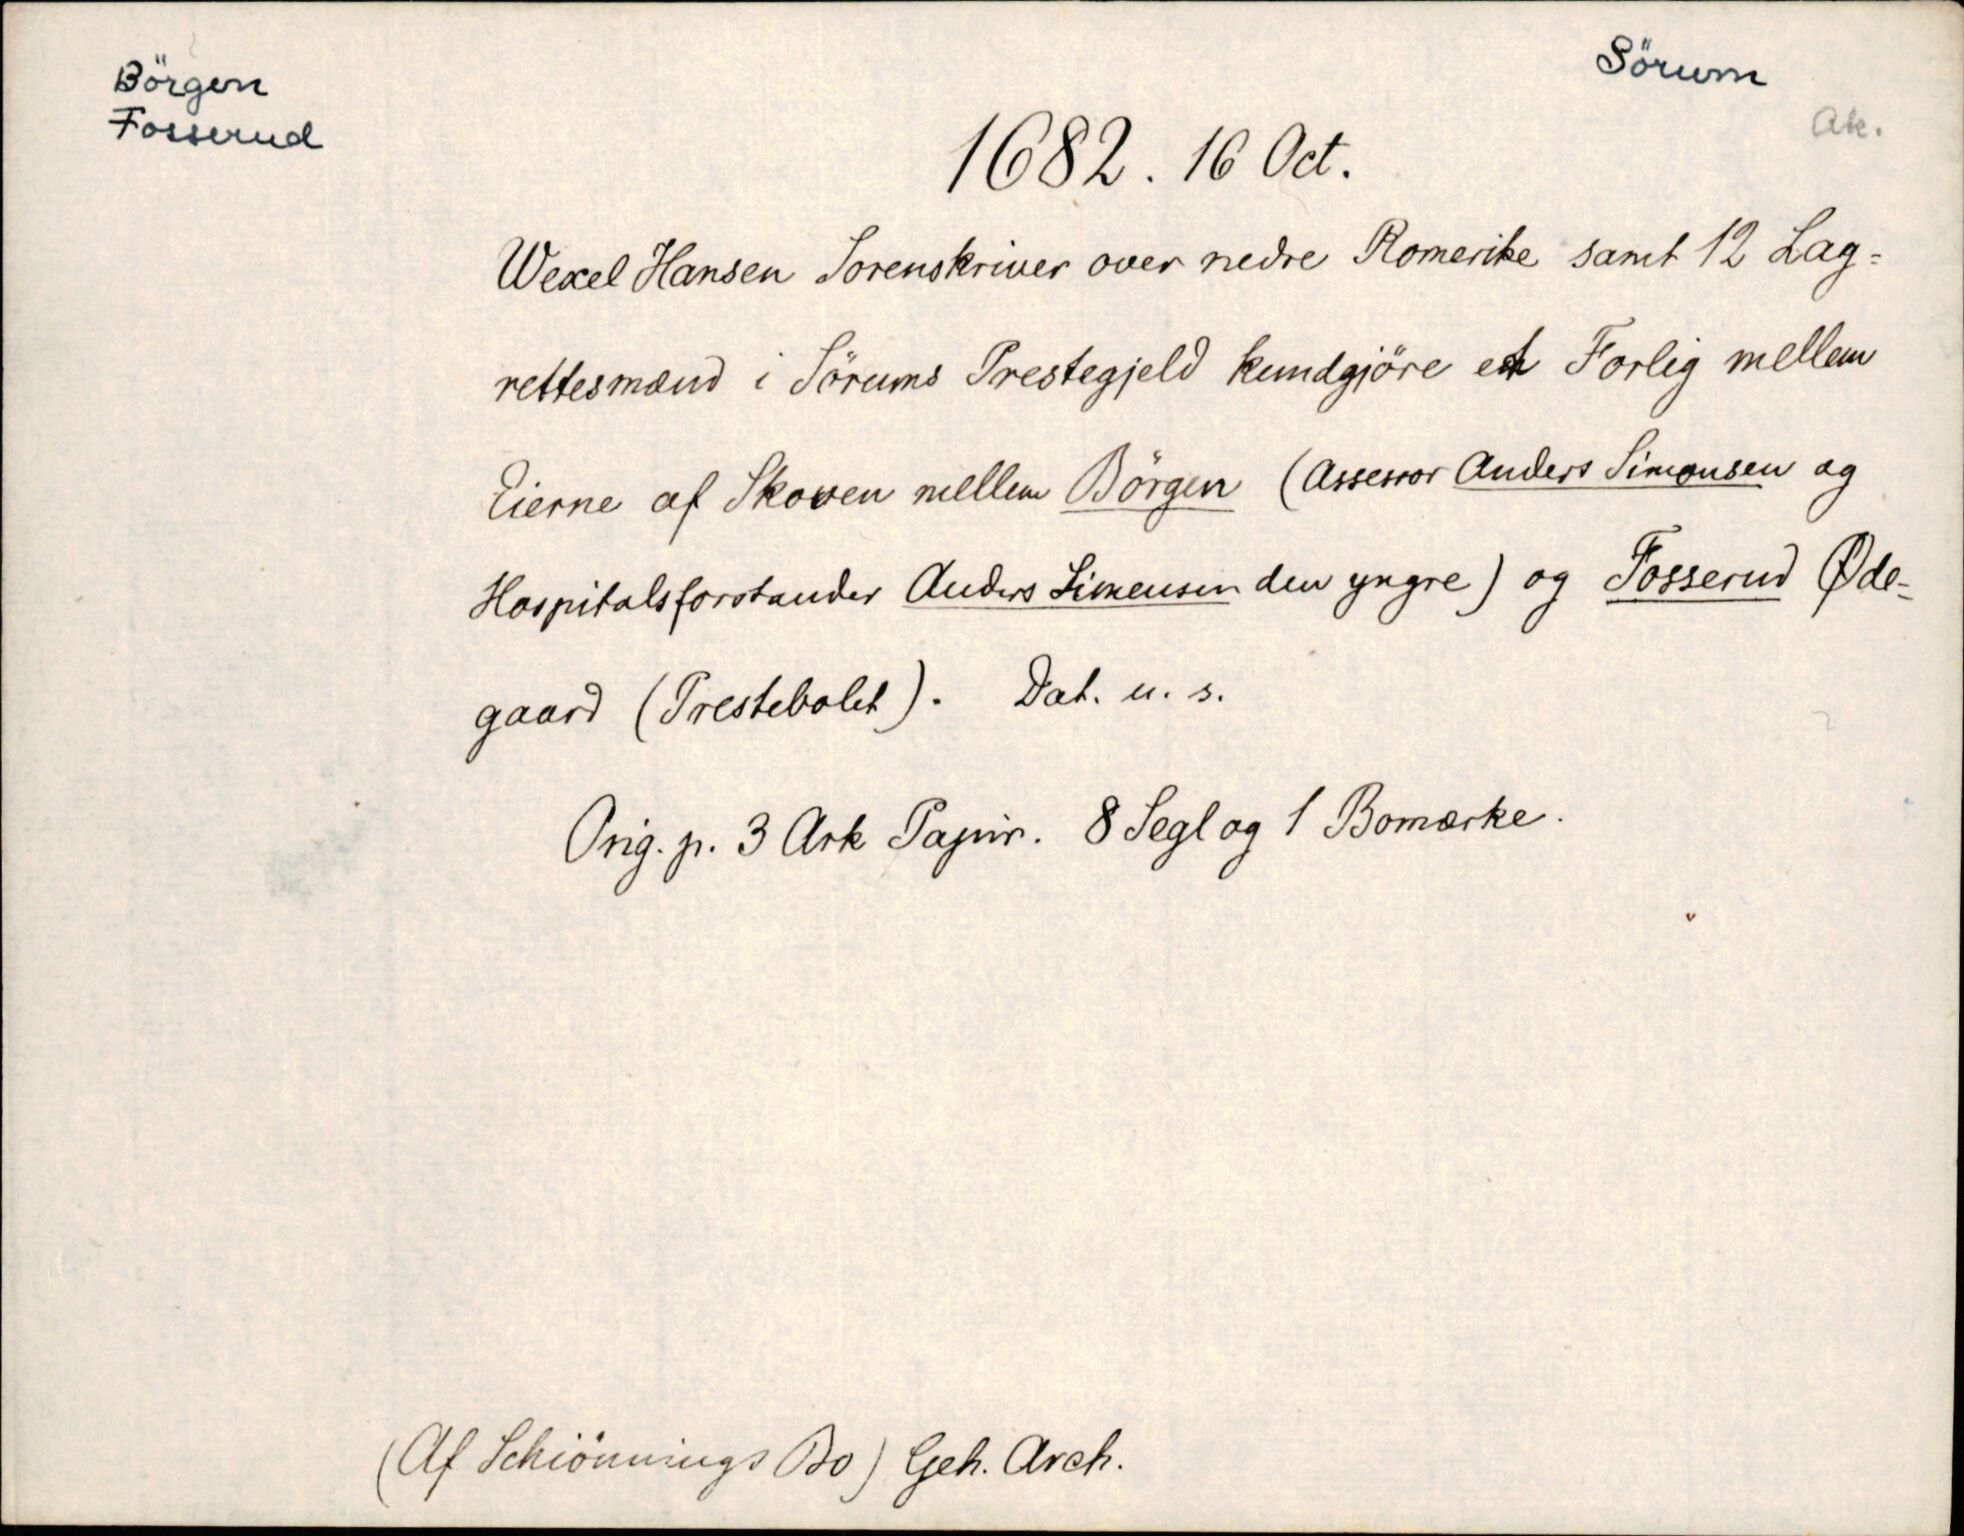 Börgen
Fosserud
Sörum
Ak.
1682. 16 Oct.
Wexel Hansen Sorenskriver over nedre Romerike samt 12 Lag=
rettesmænd i Sörums Prestegjeld kundgjöre et Forlig mellem
Eierne af Skoven mellem Börgen (Assessor Anders Simonsen og
Hospitalsforstander Anders Simensen den yngre) og Fosserud Øde-
gaard (Prestebolet). Dat. u. s.
Orig. p. 3 Ark Papir. 8 Segl og 1 Bomærke.
(Af Schiönnings Bo) Geh. Arch.